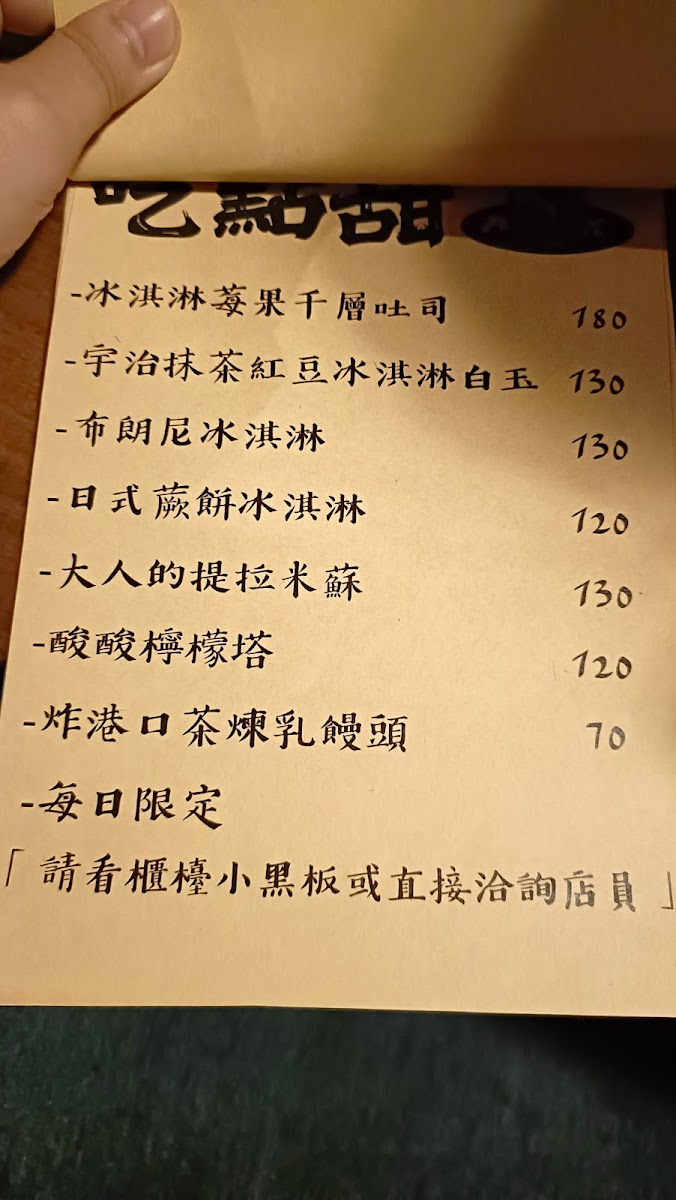 吃點甜
-冰淇淋莓果千層吐司 180
-宇治抹茶紅豆冰淇淋白玉 130
-布朗尼冰淇淋 130
-日式蕨餅冰淇淋 120
-大人的提拉米蘇 130
-酸酸檸檬塔 120
-炸港口茶煉乳饅頭 70
-每日限定
「請看櫃檯小黑板或直接洽詢店員」